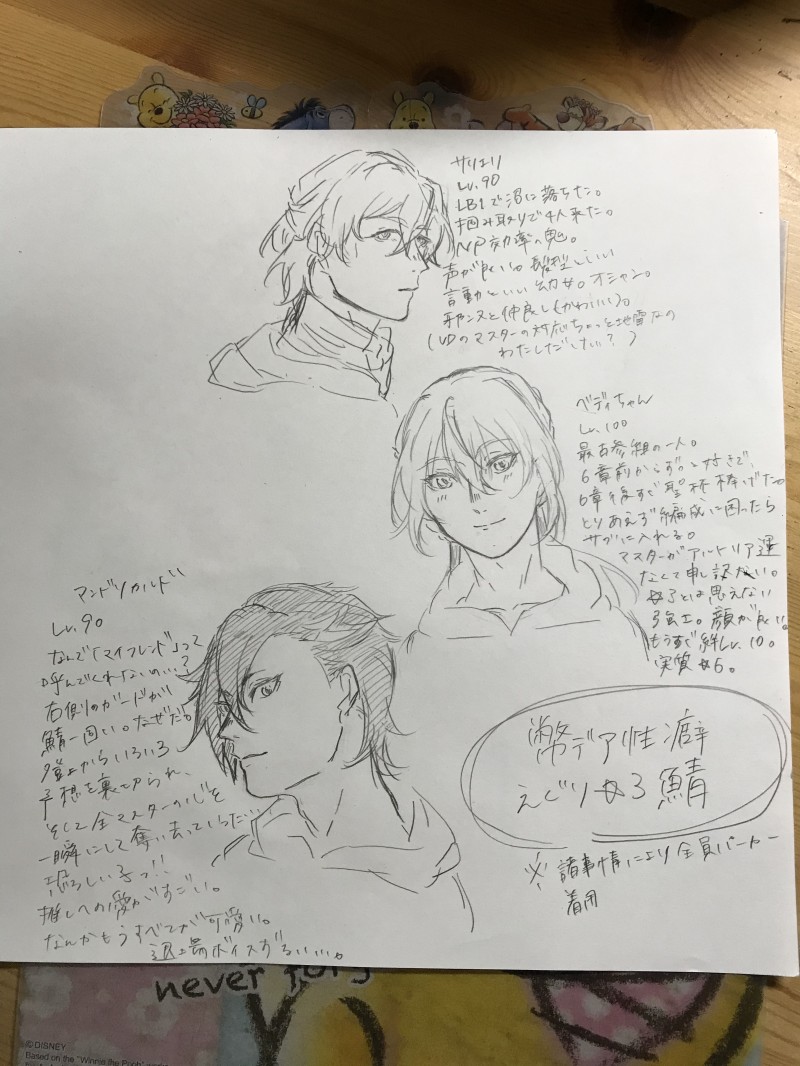 サリエリ
Lv.90
LB1で沼に落ちた。
掴み取りで4人来た。
NP効率の鬼。
声が良い。髪型といい
言動といい幼女。オジャン。
邪ンヌと仲良し(かわいい)。
(VDのマスターの対応ちょっと地雷なの
わたしだけ?)
ベディちゃん
Lv.100
最古参組の一人。
6章前からずっと好きで、
6章後すぐ聖杯捧げた。
とりあえず編成に困ったら
サブに入れる。
マスターがアルトリア運
なくて申し訳ない。
☆3とは思えない
強さ。顔が良い。
もうすぐ絆Lv.10。
実質☆5。
マンドリカルド
Lv.90
なんで「マイフレンド」って
呼んでくれないの…?
右側のガードが
鯖一固い。なぜだ。
からいろいろ
予想を裏切られ、
そして全マスターの心を
一瞬にして奪い去っていった…
恐ろしい子っ!!
推しへの愛がすごい。
なんかもうすべてが可愛い。
退場ボイスずるい…。
弊デア性癖
えぐり☆3鯖
※諸事情により全員パーカー
着用
never forg
©DISNEY
Based on the "Winnie the Pooh"